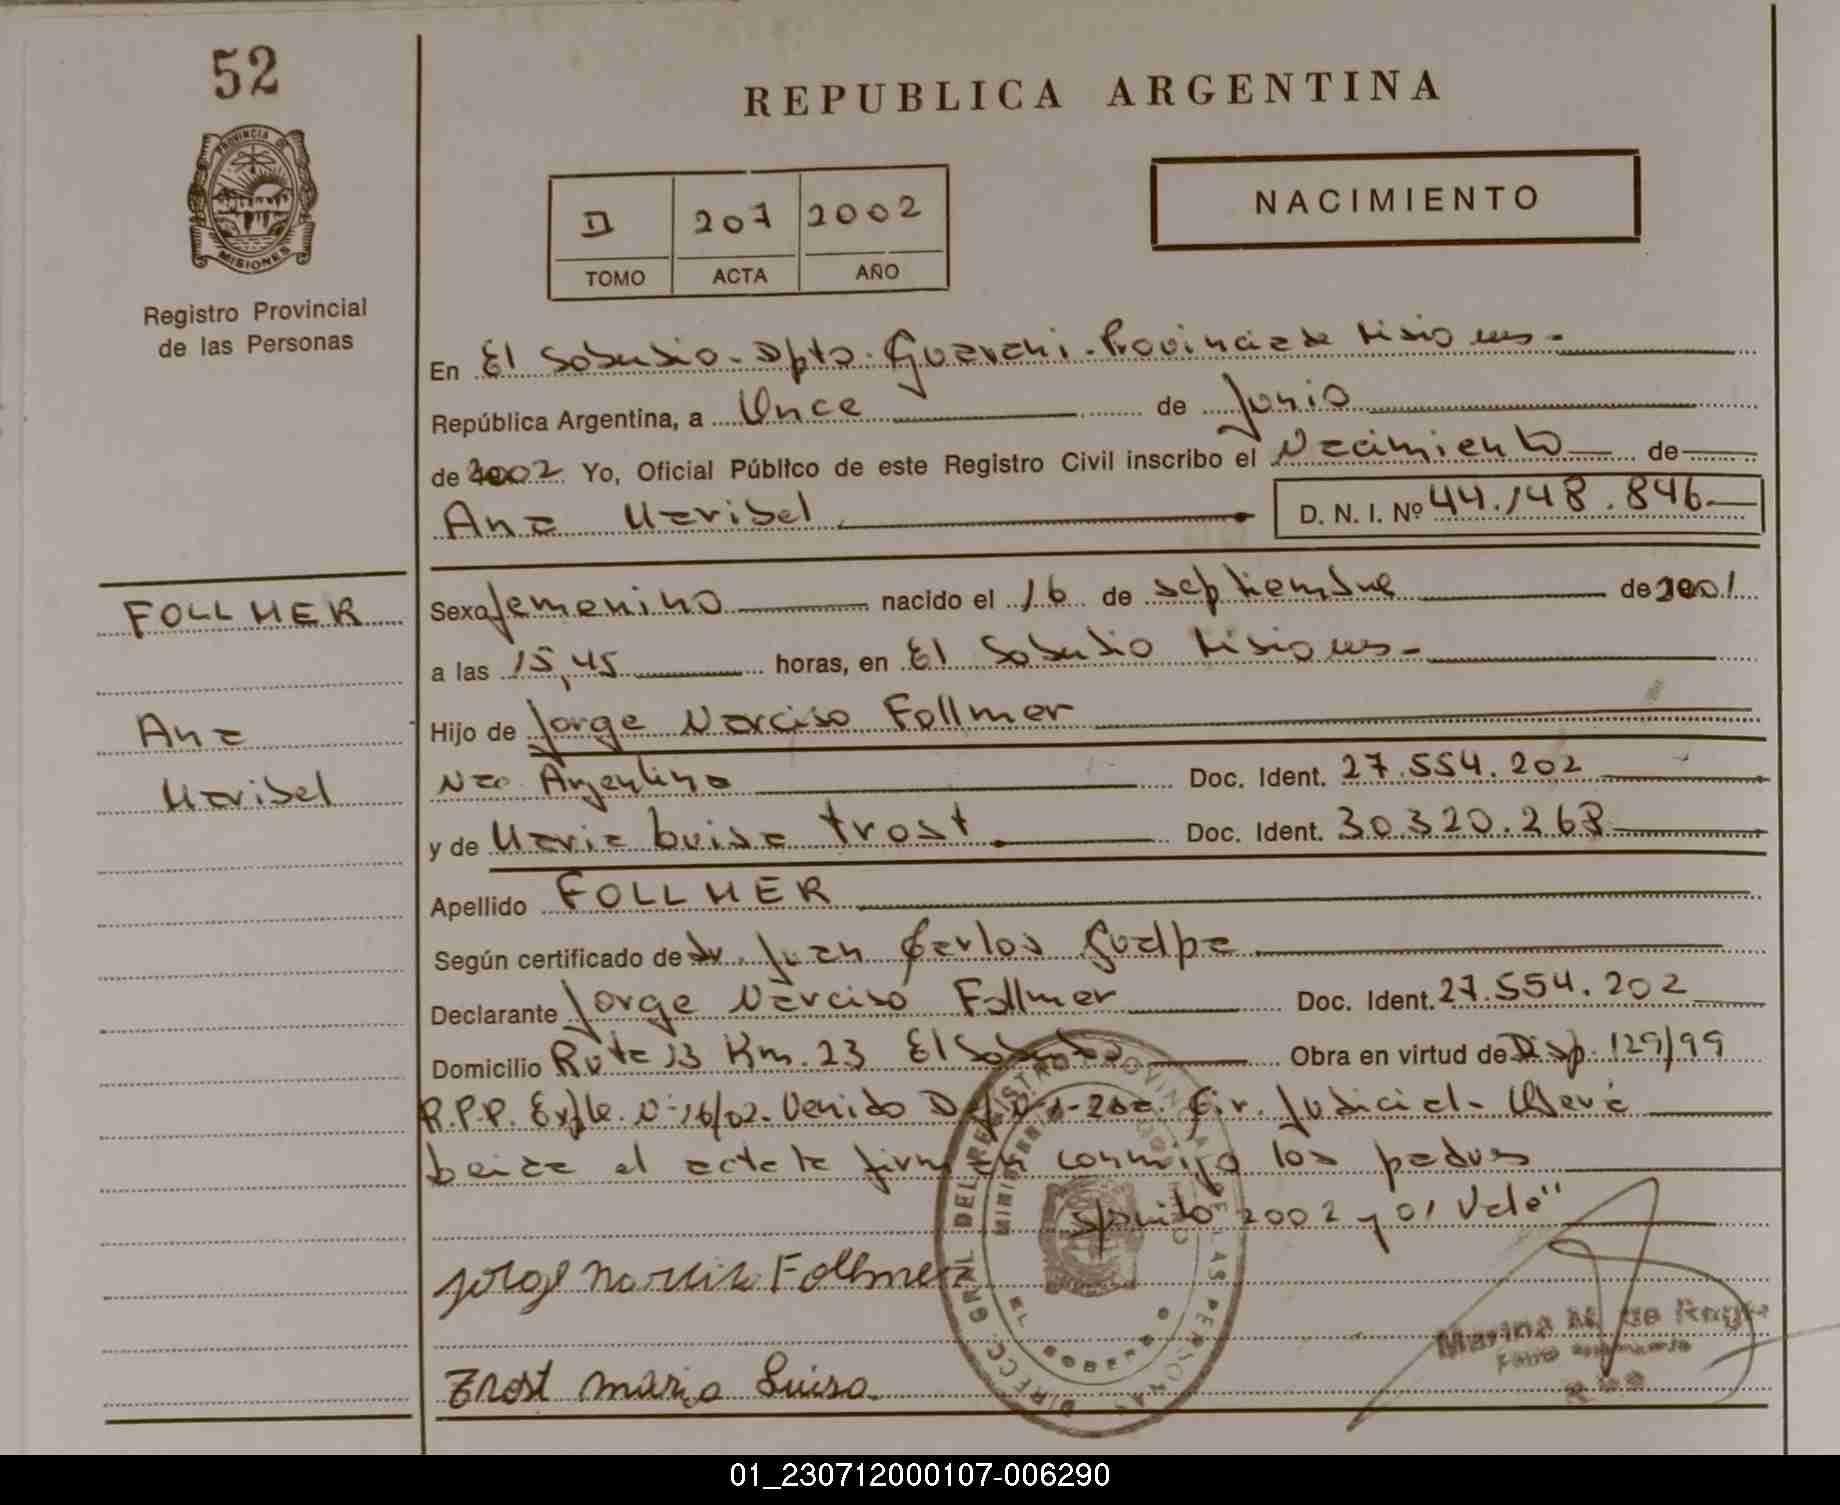 52
PROVINCIA DE
MISIONES
Registro Provincial
de las Personas
REPUBLICA ARGENTINA
II 207 2002
TOMO ACTA AÑO
NACIMIENTO
En El Soberbio - Dpto. Guarani - Provincia de Misiones -
República Argentina, a Once de Junio
de 2002 Yo, Oficial Público de este Registro Civil inscribo el Nacimiento de
Ana Maribel D. N. I. Nº 44.148.846
FOLLMER
Ana
Maribel
Sexo femenino nacido el 16 de septiembre de 2001
a las 15,45 horas, en El Soberbio Misiones -
Hijo de Jorge Narciso Follmer
Nac. Argentina Doc. Ident. 27.554.202
y de Maria Luisa Trost Doc. Ident. 30.320.268
Apellido FOLLMER
Según certificado de Dr. Juan Carlos Gualpa
Declarante Jorge Narciso Follmer Doc. Ident. 27.554.202
Domicilio Ruta 13 Km. 23 El Soberbio Obra en virtud de Disp. 129/99
R.P.P. Expte. Nº 16/02 - Venido Cir. Judicial - Oberá
Leida el acta la firman conmigo los padres
2002 y 01 Vale"
Jorge Narciso Follmer
Trost Maria Luisa
DIRECC. GRAL DEL REGISTRO PROVINCIAL DE LAS PERSONAS
EL SOBERBIO
Marina M. de
01_230712000107-006290